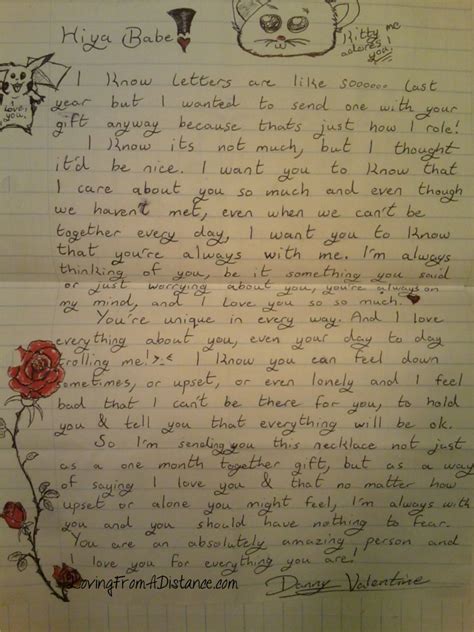 Hiya Babe
Kitty me
adores
you!
i love
you.
I know letters are like sooooo last
year but I wanted to send one with your
gift anyway because thats just how I role!
I know its not much, but I thought
it'd be nice. I want you to know that
I care about you so much and even though
we haven't met, even when we can't be
together every day, I want you to know
that you're always with me. I'm always
thinking of you, be it something you said
or just worrying about you, you're always on
my mind, and I love you so so much.
You're unique in every way. And I love
everything about you, even your day to day
trolling me! >.< I know you can feel down
sometimes, or upset, or even lonely and I feel
bad that I can't be there for you, to hold
you & tell you that everything will be ok.
So I'm sending you this necklace not just
as a one month together gift, but as a way
of saying I love you & that no matter how
upset or alone you might feel, I'm always with
you and you should have nothing to fear.
You are an absolutely amazing person and
I love you for everything you are!
LovingFromADistance.com
Danny Valentine